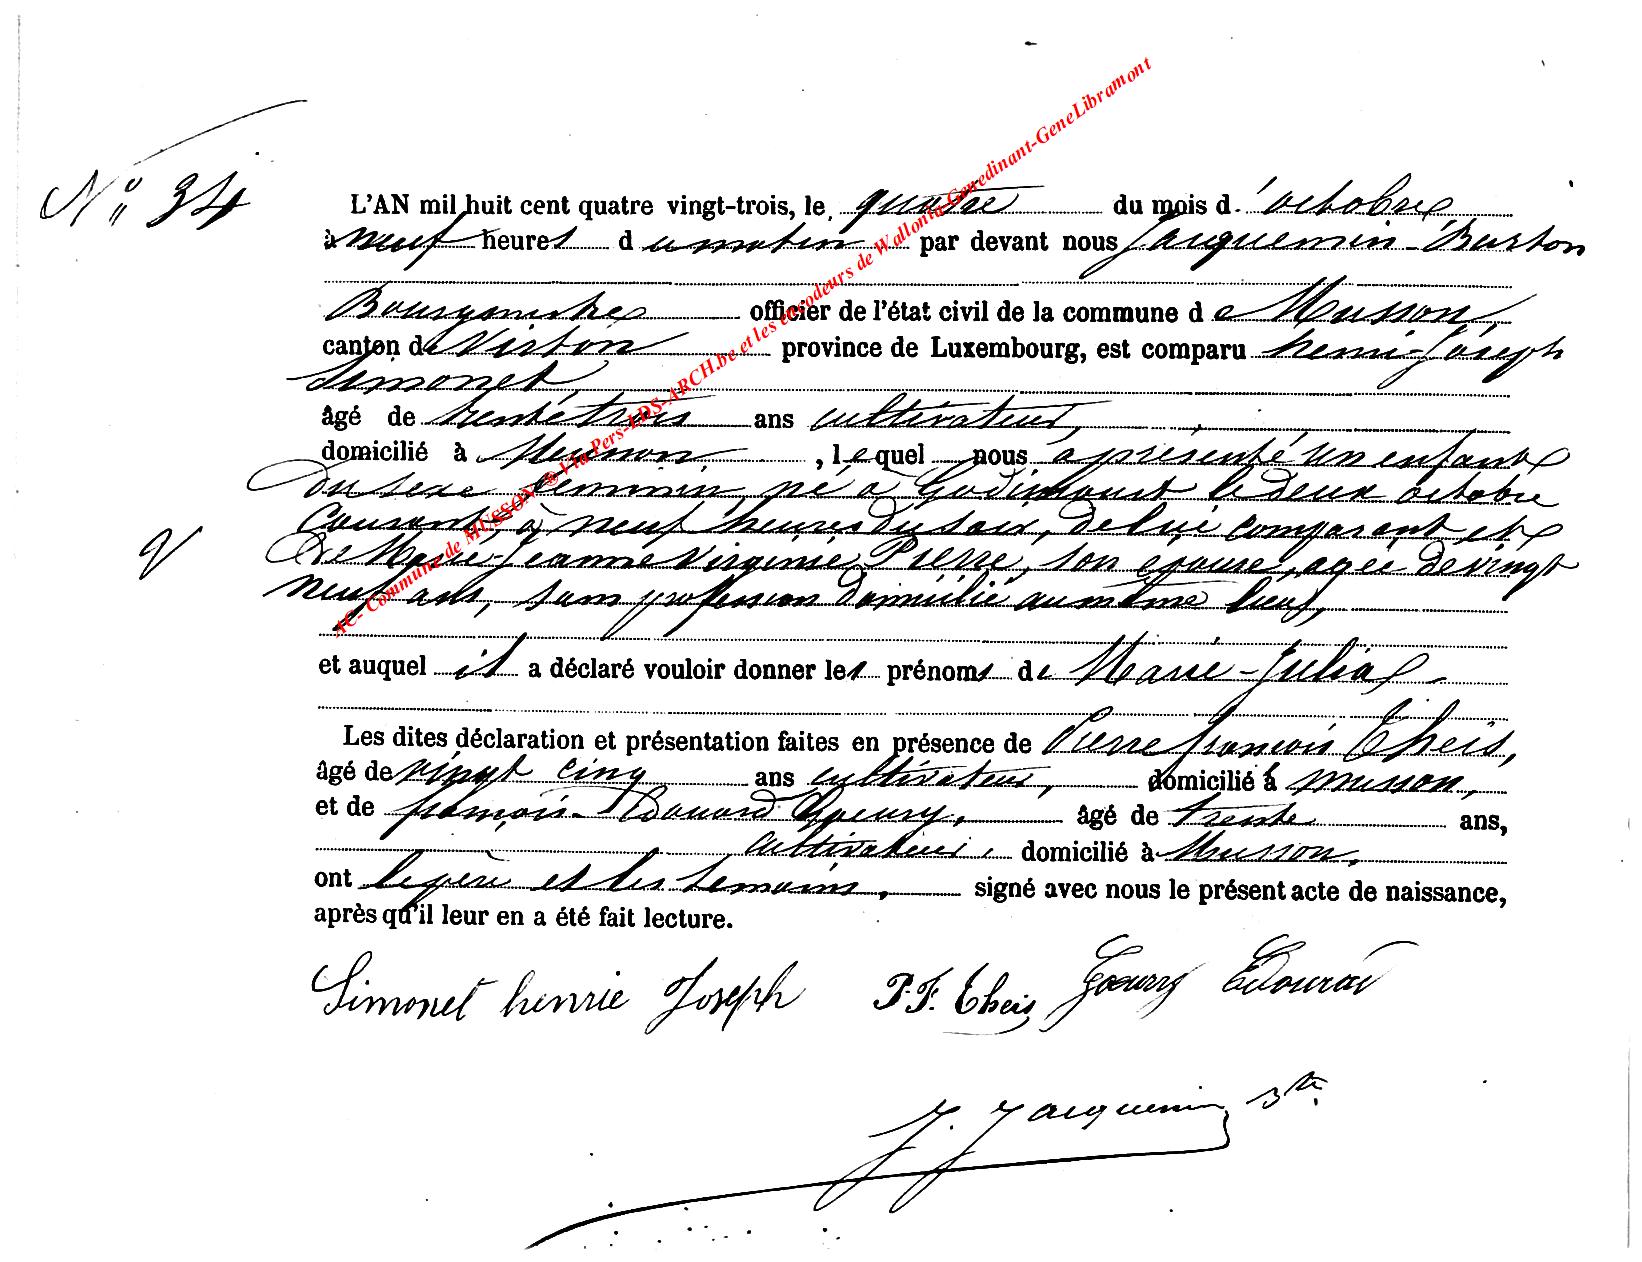 N° 34
L'AN mil huit cent quatre vingt-trois, le quatre du mois d'octobre
à neuf heures du matin par devant nous Jacquemin-Burton
Bourgmestre officier de l'état civil de la commune de Musson,
canton de Virton province de Luxembourg, est comparu henri-Joseph
Simonet,
âgé de trente trois ans cultivateur,
domicilié à Musson, , lequel nous a présenté un enfant
du sexe féminin, né à Godimont le deux octobre
courant, à neuf heures du soir, de lui comparant et
de Marie-Jeanne Virginie Pierre, son épouse, agée de vingt
neuf ans, sans profession domicilié au même lieu,
et auquel il a déclaré vouloir donner les prénoms de Marie-Julia
Les dites déclaration et présentation faites en présence de Pierre françois Theis,
âgé de vingt cinq ans cultivateur, domicilié à musson,
et de françois-Edouard Goeury, âgé de trente ans,
cultivateur, domicilié à Musson,
ont le père et les témoins, signé avec nous le présent acte de naissance,
après qu'il leur en a été fait lecture.
Simonet henrie Joseph P.F. Theis Goeury Edouard
J. Jacquemin Bte.
AC- Commune de MUSSON © Via Pers-LDS-ARCH.be et les encodeurs de Wallonia-Genedinant-GeneLibramont